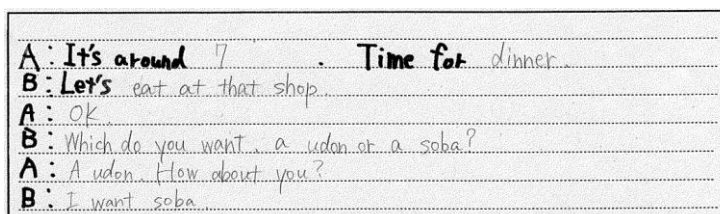 A: It's around 7 . Time for dinner.
B: Let's eat at that shop.
A: OK.
B: Which do you want, a udon or a soba?
A: A udon. How about you?
B: I want soba.